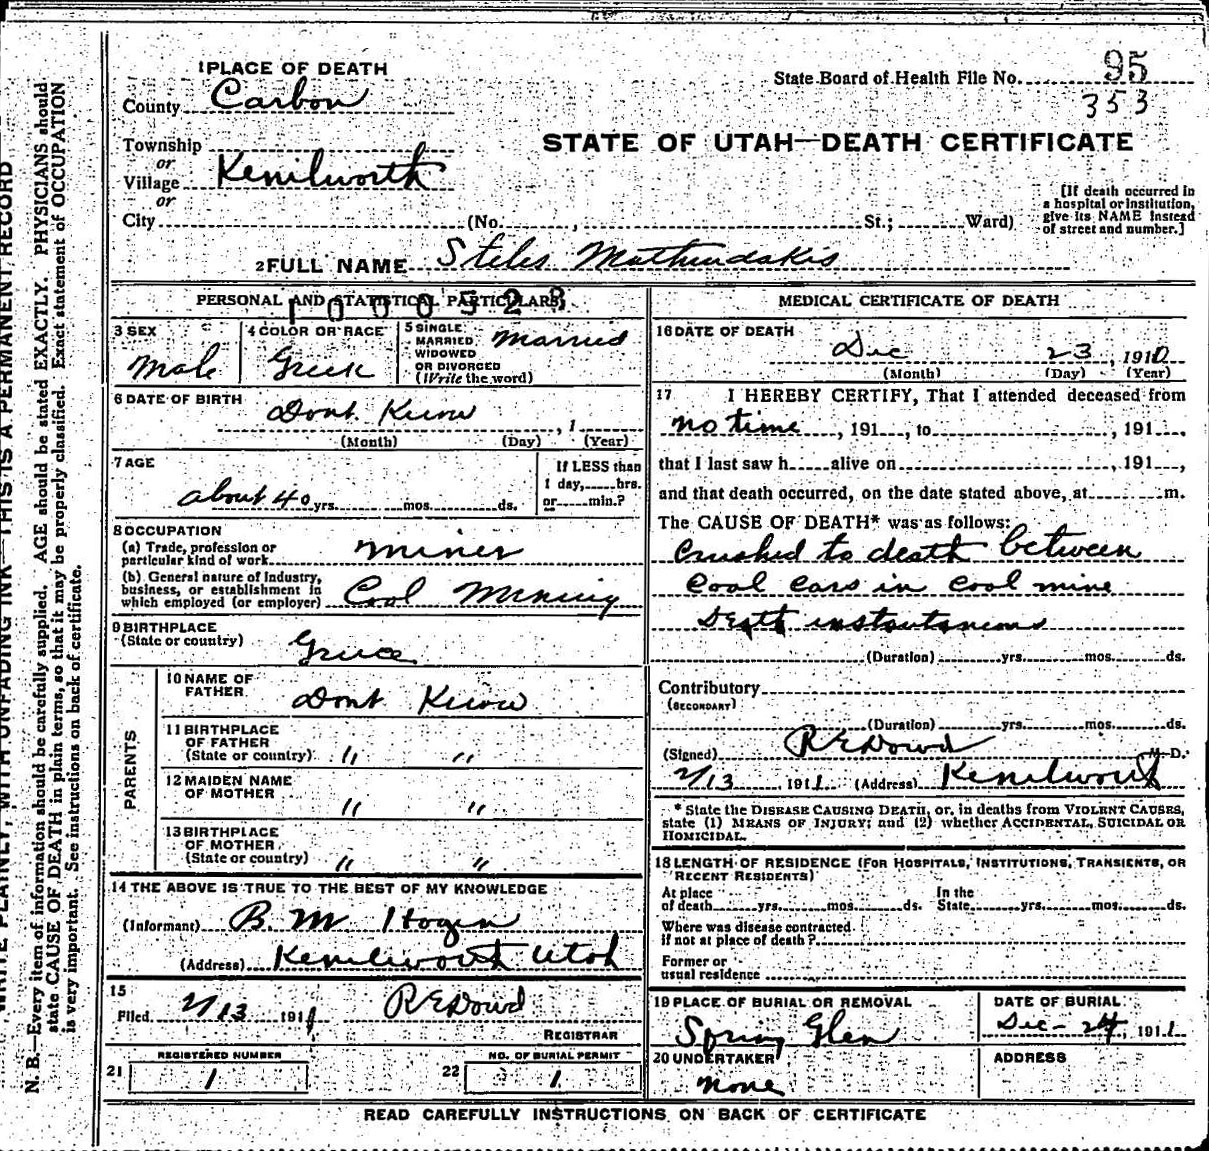 1 PLACE OF DEATH
County Carbon
Township
or
Village Kenilworth
or
City (No. , St.; Ward)
State Board of Health File No. 95
353
STATE OF UTAH—DEATH CERTIFICATE
[If death occurred in
a hospital or institution,
give its NAME instead
of street and number.]
2 FULL NAME Steles Mathudakis
PERSONAL AND STATISTICAL PARTICULARS
1000528
3 SEX
Male
4 COLOR OR RACE
Greek
5 SINGLE
MARRIED,
WIDOWED
OR DIVORCED
(Write the word)
Married
6 DATE OF BIRTH
Dont Know , 1
(Month) (Day) (Year)
7 AGE
about 40 yrs. mos. ds.
If LESS than
1 day, hrs.
or min.?
8 OCCUPATION
(a) Trade, profession or
particular kind of work Miner
(b) General nature of Industry,
business, or establishment in
which employed (or employer) Coal Mining
9 BIRTHPLACE
(State or country) Greece
PARENTS
10 NAME OF
FATHER Dont Know
11 BIRTHPLACE
OF FATHER
(State or country) " "
12 MAIDEN NAME
OF MOTHER " "
13 BIRTHPLACE
OF MOTHER
(State or country) " "
14 THE ABOVE IS TRUE TO THE BEST OF MY KNOWLEDGE
(Informant) B. M Hogen
(Address) Kenilworth Utah
15
Filed 2/13 1911 R E Dowd
REGISTRAR
REGISTERED NUMBER
21 1
NO. OF BURIAL PERMIT
22 1
MEDICAL CERTIFICATE OF DEATH
16 DATE OF DEATH
Dec 23, 1910
(Month) (Day) (Year)
17 I HEREBY CERTIFY, That I attended deceased from
no time , 191 , to , 191 ,
that I last saw h alive on , 191 ,
and that death occurred, on the date stated above, at m.
The CAUSE OF DEATH* was as follows:
Crushed to death between
Coal Cars in Coal mine
Death instantanious
(Duration) yrs. mos. ds.
Contributory
(SECONDARY)
(Duration) yrs. mos. ds.
(Signed) R E Dowd M. D.
2/13 1911 (Address) Kenilworth
* State the DISEASE CAUSING DEATH, or, in deaths from VIOLENT CAUSES,
state (1) MEANS OF INJURY; and (2) whether ACCIDENTAL, SUICIDAL OR
HOMICIDAL.
18 LENGTH OF RESIDENCE (FOR HOSPITALS, INSTITUTIONS, TRANSIENTS, OR
RECENT RESIDENTS)
At place
of death yrs. mos. ds.
In the
State yrs. mos. ds.
Where was disease contracted
if not at place of death?
Former or
usual residence
19 PLACE OF BURIAL OR REMOVAL
Spring Glen
DATE OF BURIAL
Dec - 24 1911
20 UNDERTAKER
none
ADDRESS
READ CAREFULLY INSTRUCTIONS ON BACK OF CERTIFICATE
WRITE PLAINLY, WITH UNFADING INK—THIS IS A PERMANENT RECORD
N. B.—Every item of information should be carefully supplied. AGE should be stated EXACTLY. PHYSICIANS should
state CAUSE OF DEATH in plain terms, so that it may be properly classified. Exact statement of OCCUPATION
is very important. See instructions on back of certificate.